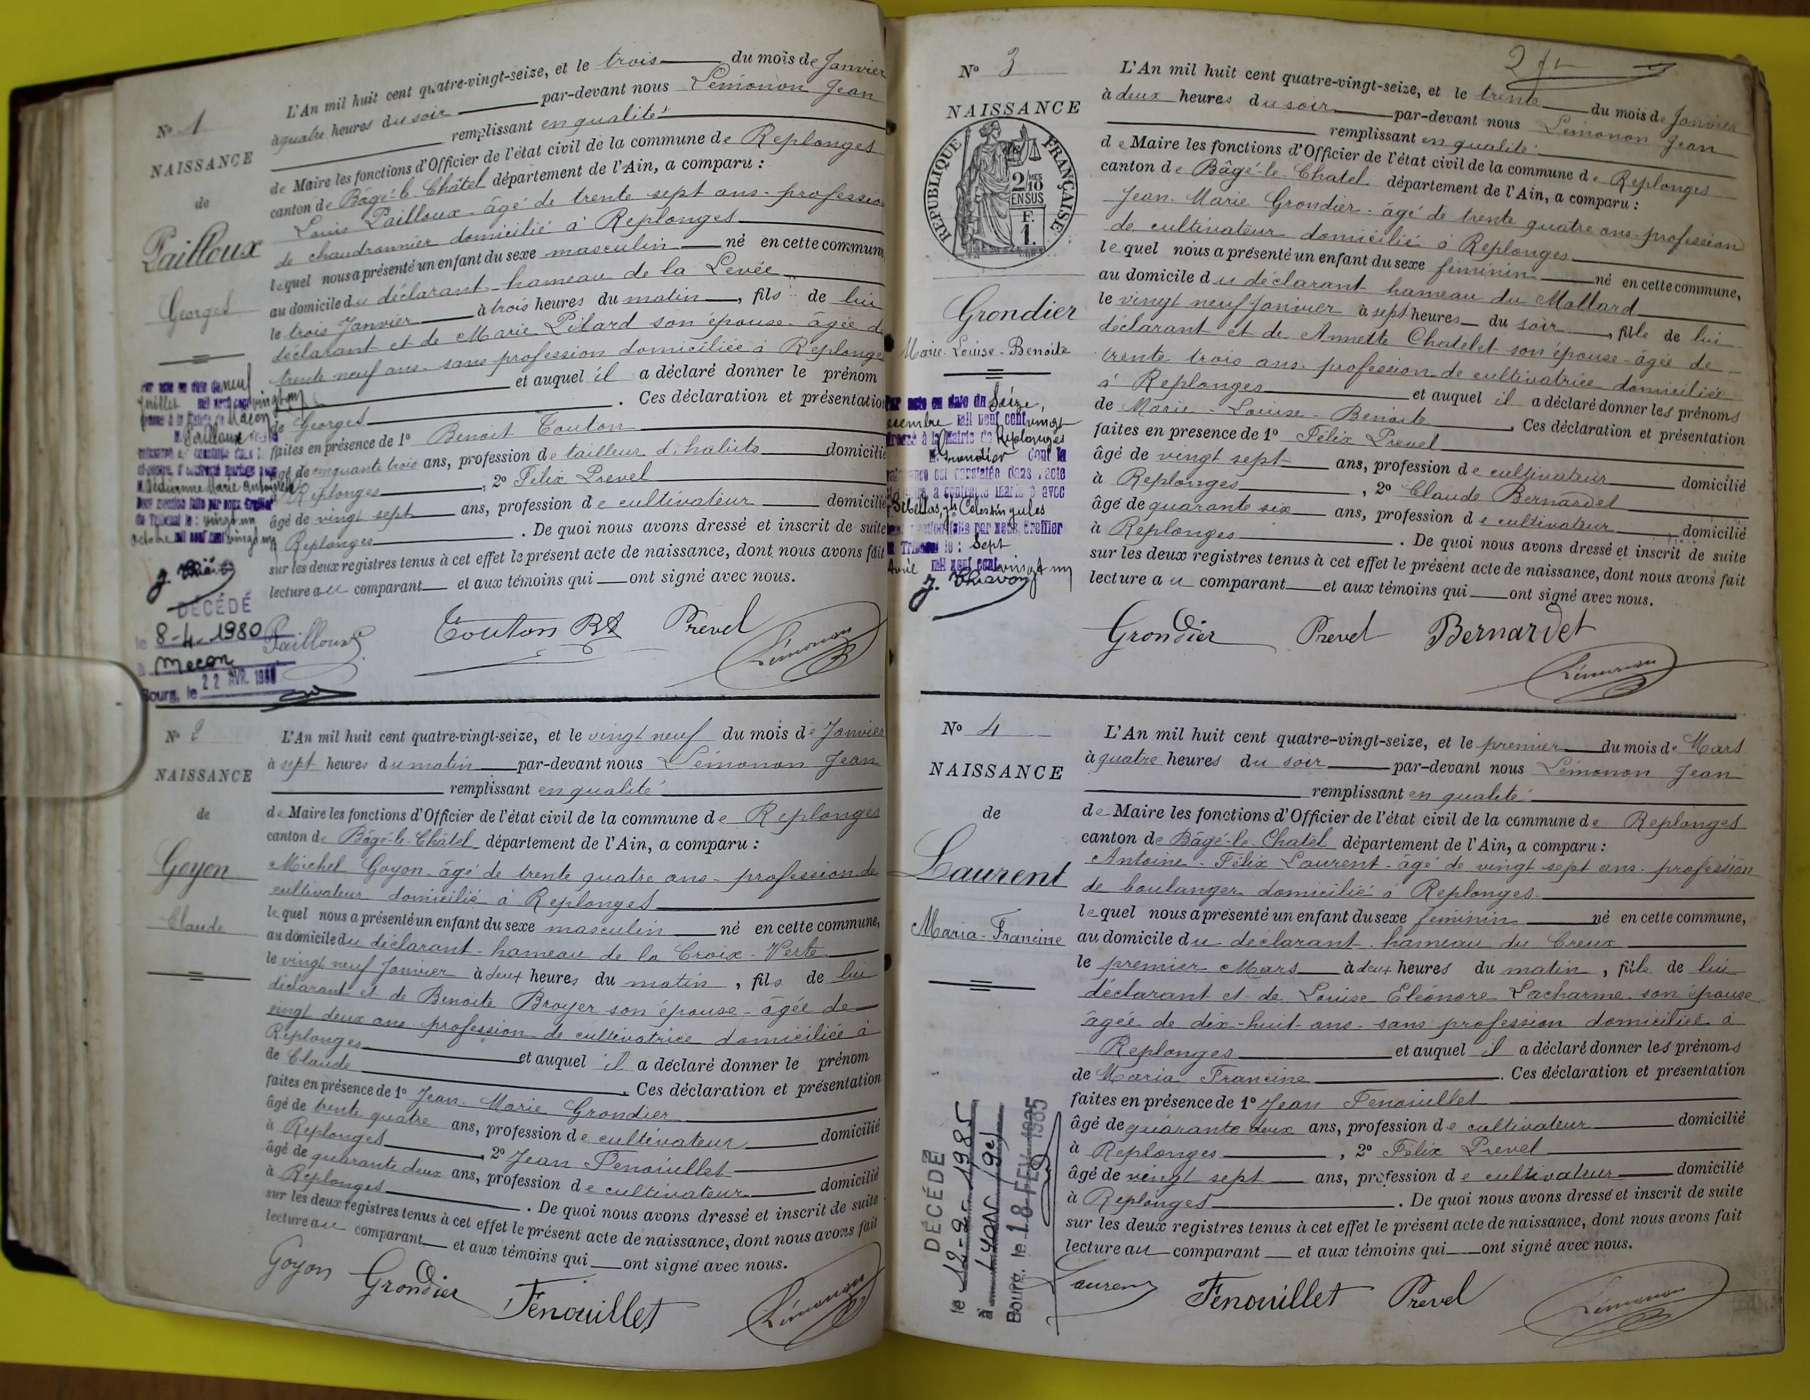 N° 1
NAISSANCE
de
Pailloux
Georges
L'An mil huit cent quatre-vingt-seize, et le trois du mois de Janvier
à quatre heures du soir par-devant nous Lémonon Jean
remplissant en qualité
de Maire les fonctions d'Officier de l'état civil de la commune de Replonges
canton de Bâgé-le-Châtel département de l'Ain, a comparu :
Louis Pailloux âgé de trente-sept ans profession
de chaudronnier domicilié à Replonges
lequel nous a présenté un enfant du sexe masculin né en cette commune,
au domicile du déclarant hameau de la Levée
le trois Janvier à trois heures du matin, fils de lui
déclarant et de Marie Pilard son épouse âgée de
trente neuf ans sans profession domiciliée à Replonges
et auquel il a déclaré donner le prénom
de Georges. Ces déclaration et présentation
faites en présence de 1° Benoit Touton
âgé de cinquante trois ans, profession de tailleur d'habits domicilié
à Replonges, 2° Félix Prevel
âgé de vingt sept ans, profession de cultivateur domicilié
à Replonges. De quoi nous avons dressé et inscrit de suite
sur les deux registres tenus à cet effet le présent acte de naissance, dont nous avons fait
lecture au comparant et aux témoins qui ont signé avec nous.
Pailloux Touton Bt Prevel Lémonon
Par acte en date du neuf
Juillet mil neuf cent vingt un
Mâcon
Pailloux
Marie
Tribunal le : vingt un
octobre mil neuf cent vingt un
DÉCÉDÉ
le 8-4-1980
à Macon
Bourg, le 22 AVR. 1980
N° 2
NAISSANCE
de
Goyon
Claude
L'An mil huit cent quatre-vingt-seize, et le vingt neuf du mois de Janvier
à sept heures du matin par-devant nous Lémonon Jean
remplissant en qualité
de Maire les fonctions d'Officier de l'état civil de la commune de Replonges
canton de Bâgé-le-Châtel département de l'Ain, a comparu :
Michel Goyon âgé de trente quatre ans profession de
cultivateur domicilié à Replonges
lequel nous a présenté un enfant du sexe masculin né en cette commune,
au domicile du déclarant hameau de la Croix-Verte
le vingt neuf Janvier à deux heures du matin, fils de lui
déclarant et de Benoite Broyer son épouse âgée de
vingt deux ans profession de cultivatrice domiciliée à
Replonges et auquel il a déclaré donner le prénom
de Claude. Ces déclaration et présentation
faites en présence de 1° Jean Marie Grondier
âgé de trente quatre ans, profession de cultivateur domicilié
à Replonges, 2° Jean Fenouillet
âgé de quarante deux ans, profession de cultivateur domicilié
à Replonges. De quoi nous avons dressé et inscrit de suite
sur les deux registres tenus à cet effet le présent acte de naissance, dont nous avons fait
lecture au comparant et aux témoins qui ont signé avec nous.
Goyon Grondier Fenouillet Lémonon
N° 3
NAISSANCE
RÉPUBLIQUE FRANÇAISE
2/10 EN SUS
F. 1.
Grondier
Marie-Louise-Benoite
L'An mil huit cent quatre-vingt-seize, et le trente du mois de Janvier
à deux heures du soir par-devant nous Lémonon Jean
remplissant en qualité
de Maire les fonctions d'Officier de l'état civil de la commune de Replonges
canton de Bâgé-le-Chatel département de l'Ain, a comparu :
Jean Marie Grondier âgé de trente quatre ans profession
de cultivateur domicilié à Replonges
lequel nous a présenté un enfant du sexe féminin né en cette commune,
au domicile du déclarant hameau du Mollard
le vingt neuf Janvier à sept heures du soir, fille de lui
déclarant et de Annette Chatelet son épouse âgée de
trente trois ans profession de cultivatrice domiciliée
à Replonges et auquel il a déclaré donner les prénoms
de Marie-Louise-Benoite. Ces déclaration et présentation
faites en présence de 1° Félix Prevel
âgé de vingt sept ans, profession de cultivateur domicilié
à Replonges, 2° Claude Bernardet
âgé de quarante six ans, profession de cultivateur domicilié
à Replonges. De quoi nous avons dressé et inscrit de suite
sur les deux registres tenus à cet effet le présent acte de naissance, dont nous avons fait
lecture au comparant et aux témoins qui ont signé avec nous.
Grondier Prevel Bernardet
Lémonon
Par acte en date du Seize
mil neuf cent vingt
à la Mairie de Replonges
Grondier dont la
naissance est constatée dans l'acte
a contracté mariage avec
Tribunal le : Sept
Avril mil neuf cent vingt un
N° 4
NAISSANCE
de
Laurent
Maria-Francine
L'An mil huit cent quatre-vingt-seize, et le premier du mois de Mars
à quatre heures du soir par-devant nous Lémonon Jean
remplissant en qualité
de Maire les fonctions d'Officier de l'état civil de la commune de Replonges
canton de Bâgé-le-Chatel département de l'Ain, a comparu :
Antoine-Félix Laurent âgé de vingt sept ans profession
de boulanger domicilié à Replonges
lequel nous a présenté un enfant du sexe féminin né en cette commune,
au domicile du déclarant hameau du Creux
le premier Mars à deux heures du matin, fille de lui
déclarant et de Louise Eléonore Lacharme son épouse
âgée de dix-huit ans sans profession domiciliée à
Replonges et auquel il a déclaré donner les prénoms
de Maria Francine. Ces déclaration et présentation
faites en présence de 1° Jean Fenouillet
âgé de quarante deux ans, profession de cultivateur domicilié
à Replonges, 2° Félix Prevel
âgé de vingt sept ans, profession de cultivateur domicilié
à Replonges. De quoi nous avons dressé et inscrit de suite
sur les deux registres tenus à cet effet le présent acte de naissance, dont nous avons fait
lecture au comparant et aux témoins qui ont signé avec nous.
Laurent Fenouillet Prevel Lémonon
DÉCÉDÉ
le 12-2-1985
à Lyon (9e)
Bourg, le 18 FEV. 1985